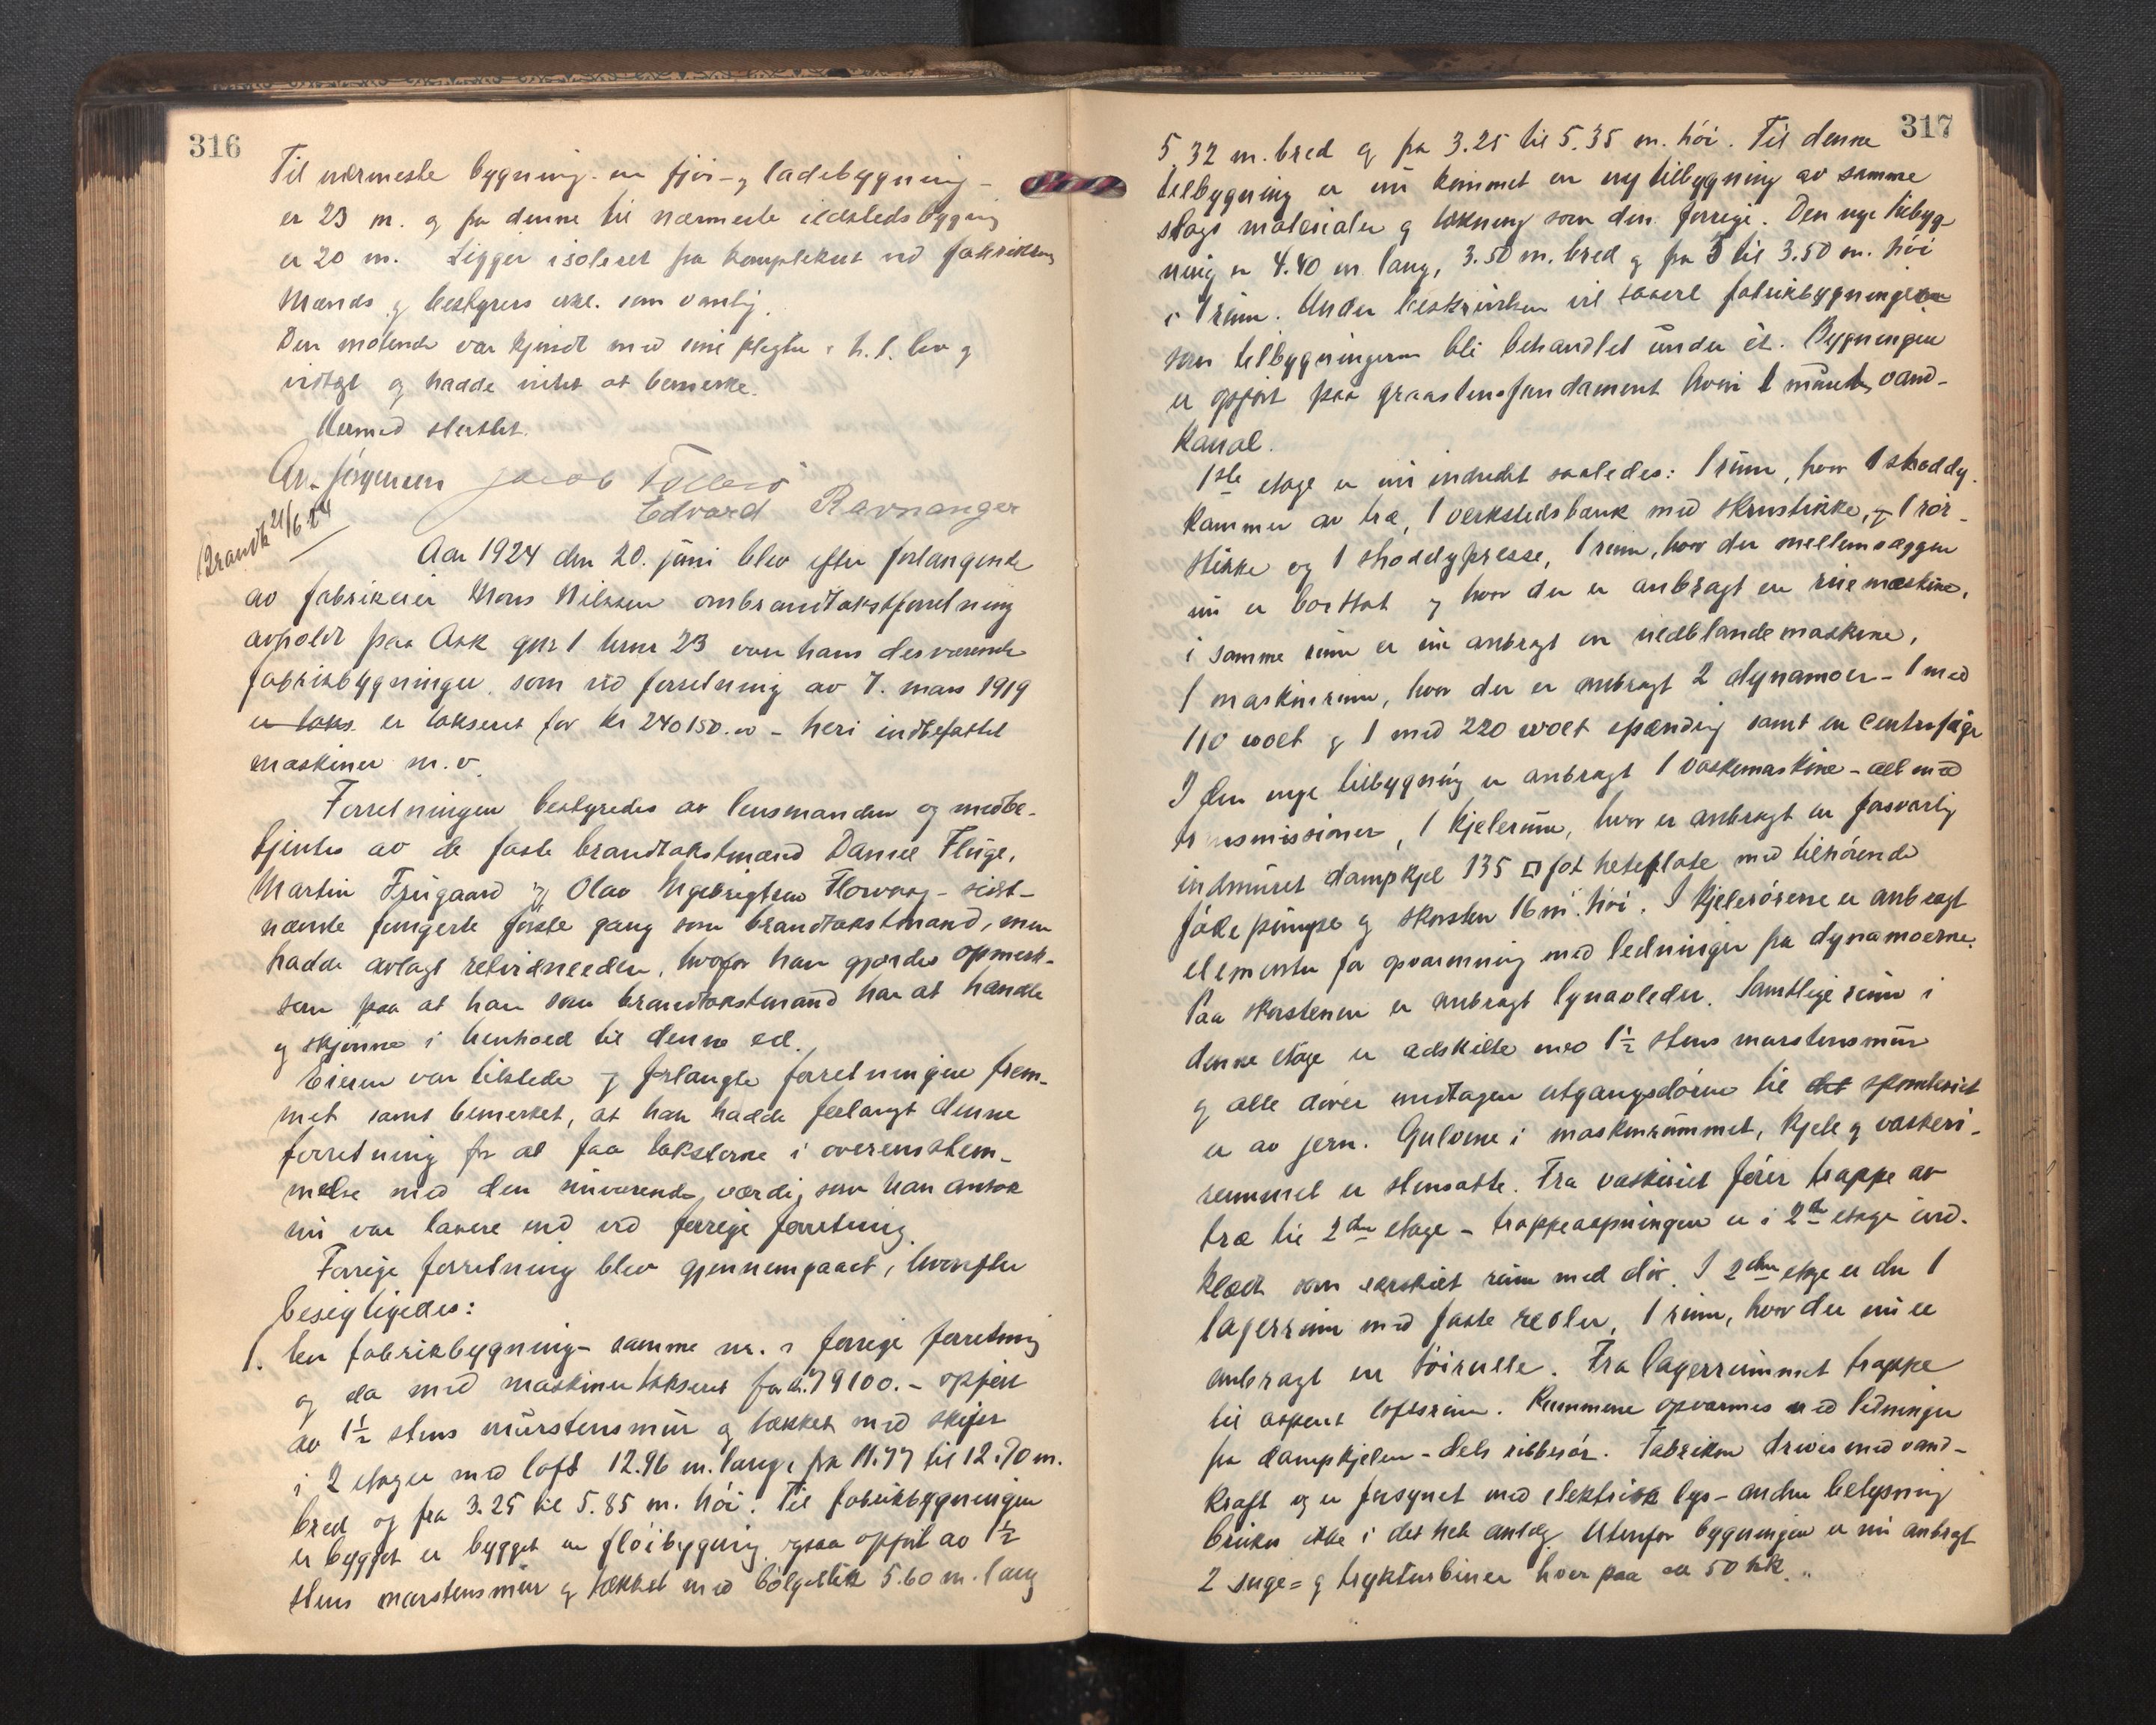 316
Til nærmeste bygning - en fjös- og ladebygning -
er 23 m. og fra denne til nærmeste ildstedsbygning
er 20 m. Ligger isoleret fra komplekset ved fabrikken
Mands og bestyrers erkl. som vanlig.
Den mötende var kjendt med sine pligter i h. t. lov og
vedtegt og hadde intet at bemerke.
Hermed sluttet.
Arn Jörgensen Jacob Tellevö
Edvard Ravnanger
Brandk 21/6 24
Aar 1924 den 20. juni blev efter forlangende
av fabrikeier Mons Nilssen ombrandtakstforretning
avholdt paa Ask gnr 1 brnr 23 over hans derværende
fabrikbygninger som ved forretning av 7. mars 1919
er taks. er takseret for kr 240150.00 - heri indbefattet
maskiner m. v.
Forretningen bestyredes av lensmanden og medbe-
tjentes av de faste brandtakstmænd Daniel Flüge,
Martin Friigaard og Olav Ingebrigtsen Florvaag - sidst-
nævnte fungerte förste gang som brandtakstmand, men
hadde avlagt retvidneeden, hvorfor han gjordes opmerk-
som paa at han som brandtakstmand har at handle
og skjönne i henhold til denne ed.
Eieren var tilstede og forlangte forretningen frem-
met samt bemerket, at han hadde forlangt denne
forretning for at faa taksterne i overensstem-
melse med den nuværende værdi, som han ansaa
nu var lavere end ved forrige forretning.
Forrige forretning blev gjennemgaaet, hvorefter
besigtigedes:
1. En fabrikbygning - samme nr. i forrige forretning
og da med maskiner takseret for kr. 79100.- opfört
av 1½ stens murstensmur og tækket med skifer
i 2 etager med loft 12.96 m. lang, fra 11.77 til 12.70 m.
bred og fra 3.25 til 5.85 m. höi. Til fabrikbygningen
er bygget er bygget en flöibygning ogsaa opfört av 1½
stens murstensmur og tækket med bölgeblik 5.60 m. lang
317
5.32 m. bred og fra 3.25 til 5.35 m. höi. Til denne
tilbygning er nu kommet en ny tilbygning av samme
slags materialer og tækning som den forrige. Den nye tilbyg-
ning er 4.40 m lang, 3.50 m. bred og fra 3 til 3.50 m. höi
i 1 rum. Under beskrivelsen vil saavel fabrikbygningen
som tilbygningerne bli behandlet under et. Bygningen
er opfört paa graastensfundament hvori 1 muret vand-
kanal.
1ste etage er nu indredet saaledes: 1 rum, hvor 1 shoddy-
kammer av træ, 1 verkstedsbænk med skrustikke, og 1 rör-
stikke og 1 shoddypresse, 1 rum, hvor der mellemvæggen
nu er borttat og hvor der er anbragt en rivemaskine,
i samme rum er nu anbragt en uldblandemaskine,
1 maskinrum, hvor der er anbragt 2 dynamoer - 1 med
110 wolt og 1 med 220 wolt spænding samt en centrifuge
I den nye tilbygning er anbragt 1 vaskemaskine - alt med
transmissioner, 1 kjelerum, hvor er anbragt en forsvarlig
indmuret dampkjel 135 □ fot heteflate med tilhörende
födepumpe og skorsten 16 m. höi. I kjelerörene er anbragt
elementer for opvarmning med ledninger fra dynamoerne.
Paa skorstenen er anbragt lynavleder. Samtlige rum i
denne etage er adskilte med 1½ stens murstensmur
og alle dörer undtagen utgangsdören til det spinderiet
er av jern. Gulvene i maskinrummet, kjele og vaskeri-
rummet er stensatte. Fra vaskeriet förer trappe av
træ til 2den etage - trappeaapningen er i 2den etage ind-
klædt som særskilt rum med dör. I 2den etage er der 1
lagerrum med faste reoler, 1 rum, hvor der nu er
anbragt en töirulle. Fra lagerrummet trappe
til aapent loftsrum. Rummene opvarmes ved ledninger
fra dampkjelen - dels ribberör. Fabrikken drives med vand-
kraft og er forsynet med elektrisk lys - anden belysning
brukes ikke i det hele anlæg. Utenfor bygningen er nu anbragt
2 suge- og trykturbiner hver paa ca 50 hk.